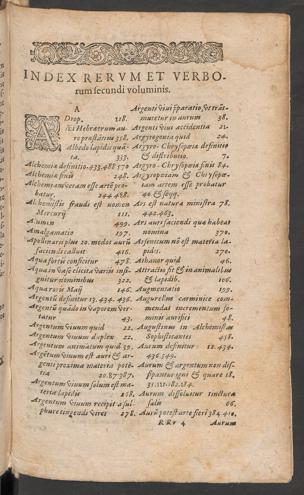 INDEX RERVM ET VERBO-
rum secundi voluminis.
A
Drop. 218.
Æs Hebræorum au-
ro præstātius 318.
Albedo lapidis quā-
ta. 333.
Alchemia definitio. 433.488 570
Alchemia finis 248.
Alchemiam veram esse artē pro-
batur. 244.488.
Alchemistis fraudi est nomen
Mercurij 111.
Alumen 499.
Amalgamatio 197.
Apollinaris plus 20. modos auri
faciendi calluit 416.
Aqua fortis conficitur 478.
nitur nominibus 322.
Aqua roris Maij 146.
Argentū definitur 13. 434. 436.
Argentū quādo in vaporem ver-
tatur 43.
Argentum viuum quid 22.
Argentum viuum duplex 22.
Argentum animatum quid 39.
Argētū viuum est auri & ar-
genti proxima materia potē-
tia 20.87.387.
Argentum viuum solum est ma-
teria lapidis 278.
Argentum viuum recipit a sul-
phure tingendi vires 278.
Argenti viui p̄paratio, vt trās-
mutetur in aurum 38.
Argenti viui accidentia 21.
Argyrogenia quid 24.
Argyro- Chrysopœia definitio
& distributio. 7.
Argyro- Chrysopœia finis 84.
Argyropœiam & Chrysopœ-
iam artem esse probatur
40 & seqq.
Ars est naturæ ministra 78.
442.463.
Ars auri faciendi quæ habeat
nomina 370.
Arsenicum nō est materia la-
pidis. 270.
Athanor quid 46.
Attractio fit & in animalibus
& lapidib. 106.
Augmentatio 197.
Augurelius carminice com-
mendat incrementum se-
minis aurifici 48.
Augustinus in Alchemistas
Sophisticantes 458.
Aurum definitur 12.434.
436.549.
Aurum & argentum non dis-
sipantur igni & quare 18.
31.111.182.184.
Aurum dissoluitur tincturæ
salis 66.
Aurū potest arte fieri 384 410.
RRr 4 Aurum